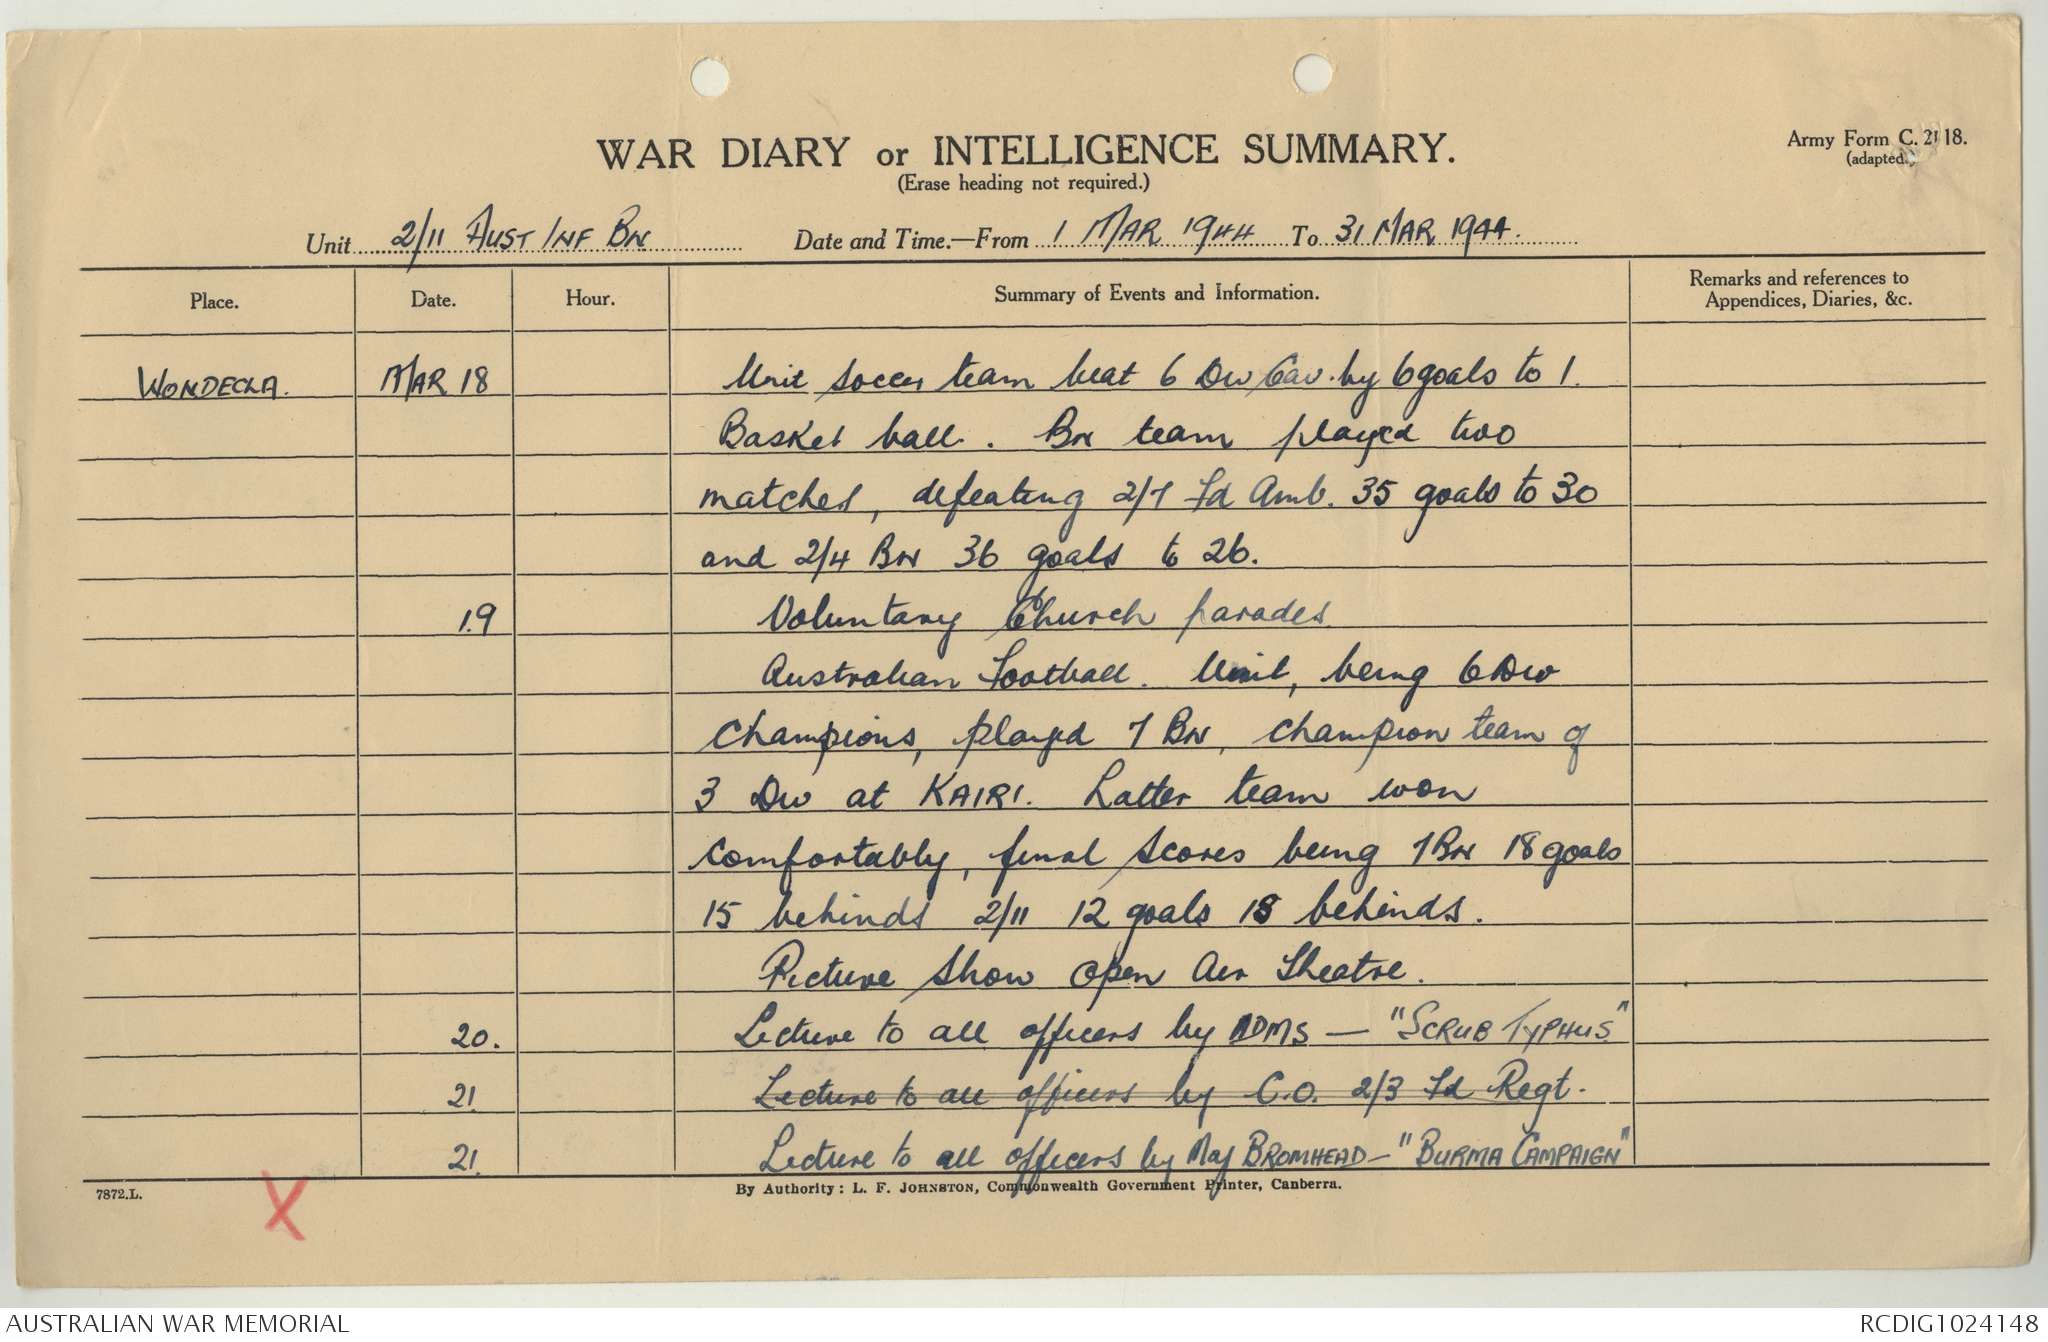 WAR DIARY or INTELLIGENCE SUMMARY.
(Erase heading not required.)
Army Form C. 2118.
(adapted.)
Unit 2/11 AUST INF BN Date and Time.—From 1 MAR 1944 To 31 MAR 1944.
Place. Date. Hour. Summary of Events and Information. Remarks and references to
Appendices, Diaries, &c.
WONDECLA. MAR 18 Unit soccer team beat 6 Div Cav. by 6 goals to 1.
Basket ball. Bn team played two
matches, defeating 2/7 Fd Amb. 35 goals to 30
and 2/4 Bn 36 goals to 26.
19 Voluntary Church parades.
Australian Football. Unit, being 6 Div
champions, played 7 Bn, champion team of
3 Div at KAIRI. Latter team won
comfortably, final scores being 7 Bn 18 goals
15 behinds 2/11 12 goals 18 behinds.
Picture Show Open Air Theatre.
20. Lecture to all officers by ADMS — "SCRUB TYPHUS"
21 Lecture to all officers by C.O. 2/3 Fd Regt.
21. Lecture to all officers by Maj BROMHEAD — "BURMA CAMPAIGN"
7872.L. By Authority: L. F. JOHNSTON, Commonwealth Government Printer, Canberra.
X
AUSTRALIAN WAR MEMORIAL RCDIG1024148